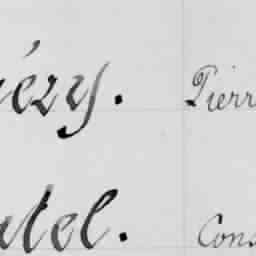 éry. Pierr
atel. Cons